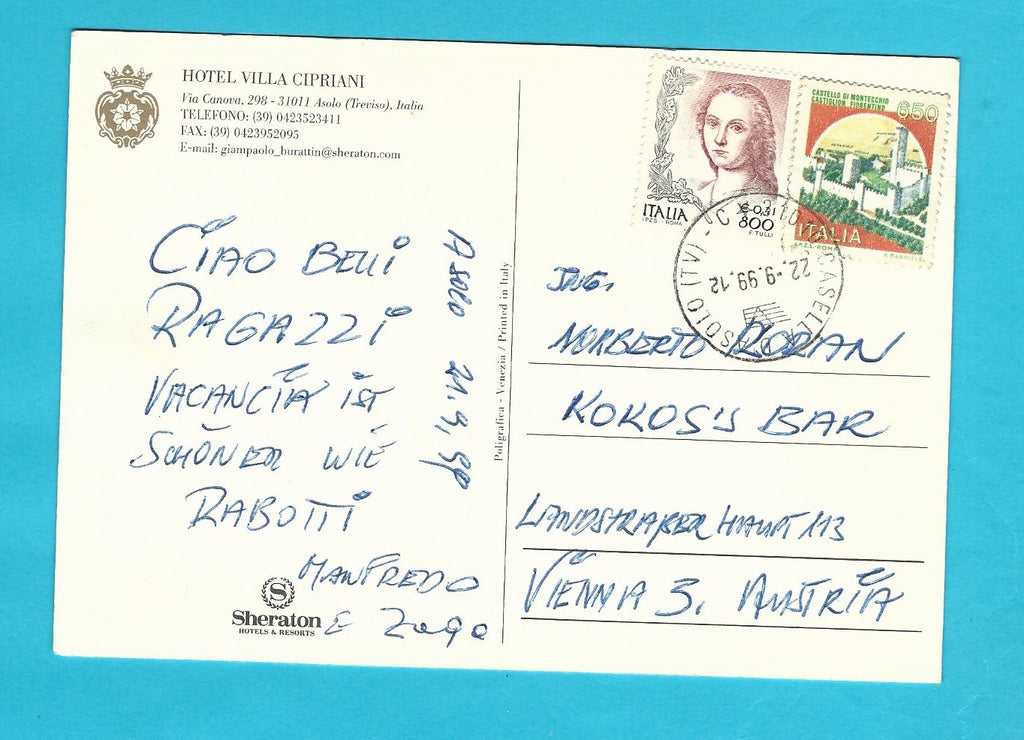 HOTEL VILLA CIPRIANI
Via Canova, 298 - 31011 Asolo (Treviso), Italia
TELEFONO: (39) 0423523411
FAX: (39) 0423952095
E-mail: giampaolo_burattin@sheraton.com
CIAO BELLI
RAGAZZI
VACANCIA IST
SCHÖNER WIE
RABOTTI
MANFREDO
E
ASOLO 21.9.99
S
Sheraton
HOTELS & RESORTS
Poligrafica - Venezia / Printed in Italy
ITALIA
€ 0,41
800
I.P.Z.S. - ROMA
F. TULLI
CASTELLO DI MONTECCHIO
CASTIGLION FIORENTINO
650
ITALIA
I.P.Z.S. ROMA
CASELLA D'ASOLO (TV)
22.9.99.12
ING.
NORBERTO
KOKOS'S BAR
LANDSTRAßER HAUPT 113
VIENNA 3. AUSTRIA